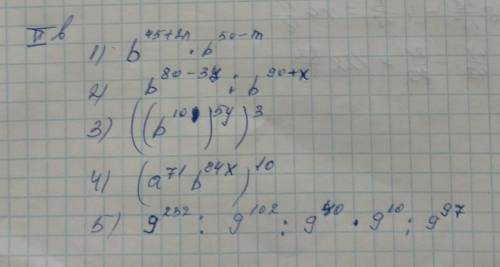 II в
1) b^{45+2n} · b^{50-m}
2) b^{80-3y} : b^{90+x}
3) ((b^{10})^{5y})^3
4) (a^{71} b^{24x})^{10}
5) 9^{232} : 9^{102} : 9^{40} · 9^{10} : 9^{97}